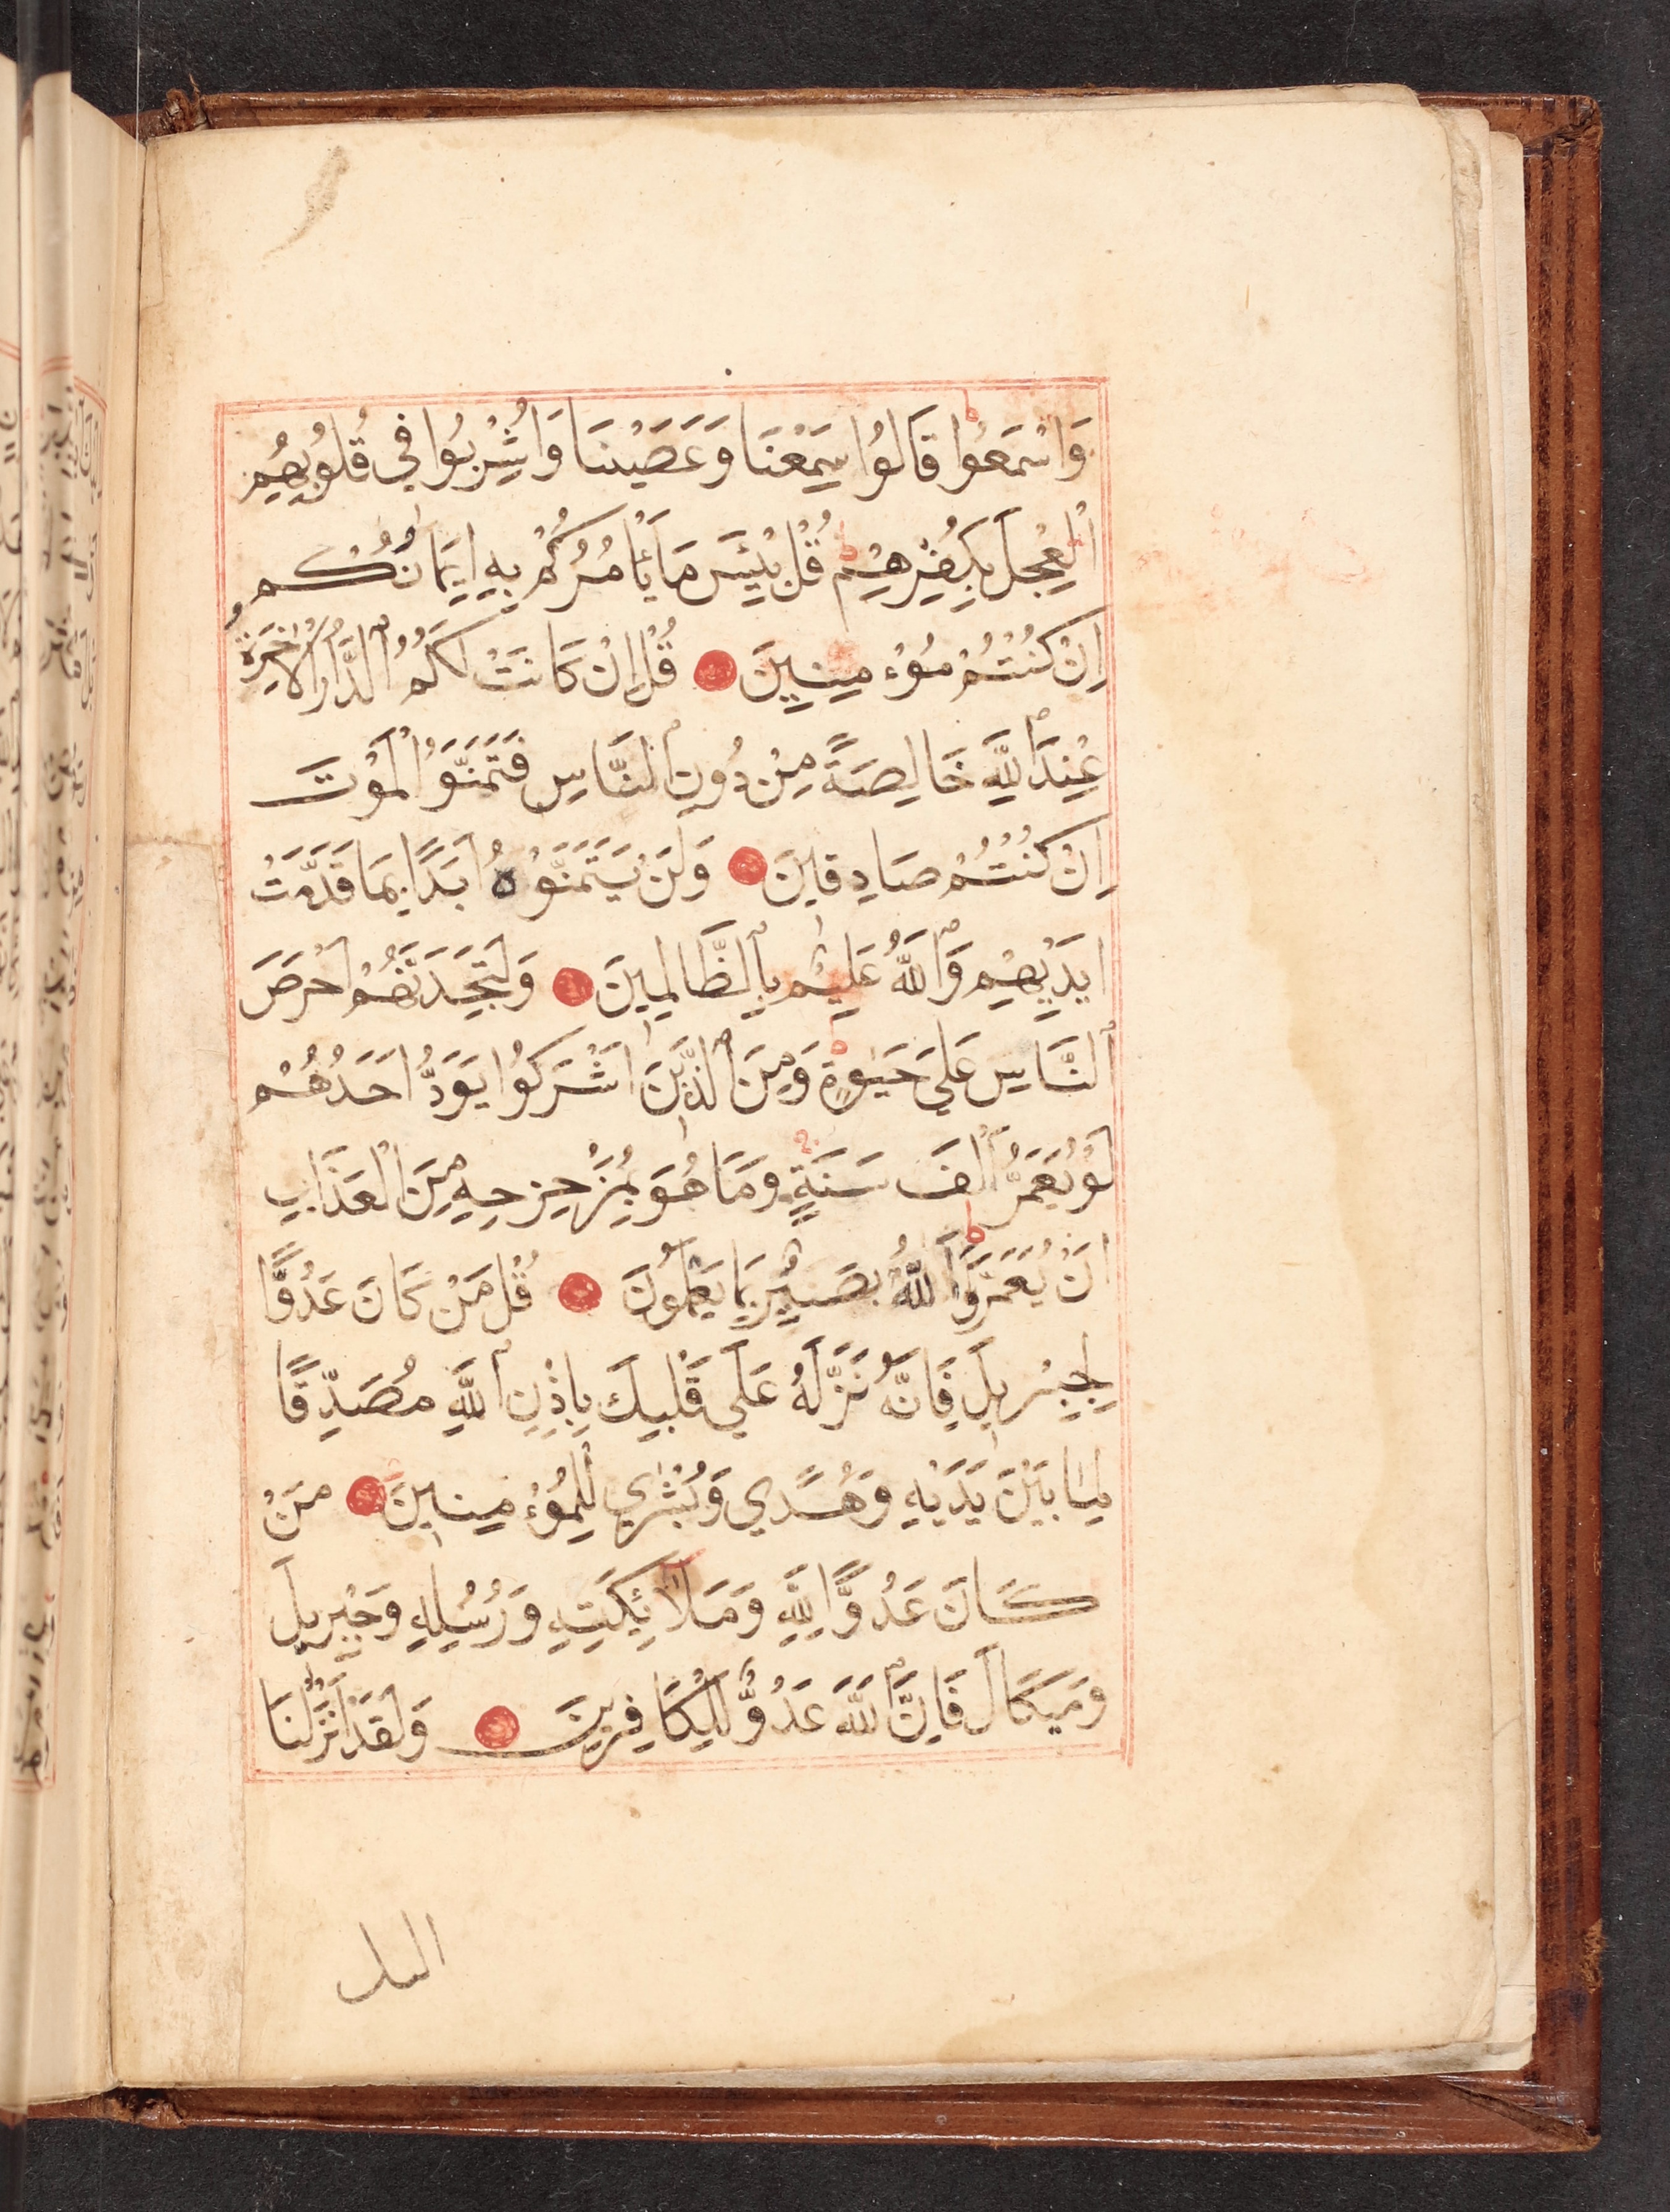 وَاسْمَعُوا قَالُوا سَمِعْنَا وَعَصَيْنَا وَاُشْرِبُوا فِي قُلُوبِهِمُ
الْعِجْلَ بِكُفْرِهِمْ قُلْ بِئْسَ مَا يَأْمُرُكُمْ بِهِ اِيمَانُكُمْ
اِنْ كُنْتُمْ مُؤْمِنِينَ قُلْ اِنْ كَانَتْ لَكُمُ الدَّارُ الْاٰخِرَةُ
عِنْدَ اللَّهِ خَالِصَةً مِنْ دُونِ النَّاسِ فَتَمَنَّوُا الْمَوْتَ
اِنْ كُنْتُمْ صَادِقِينَ وَلَنْ يَتَمَنَّوْهُ اَبَدًا بِمَا قَدَّمَتْ
اَيْدِيهِمْ وَاللَّهُ عَلِيمٌ بِالظَّالِمِينَ وَلَتَجِدَنَّهُمْ اَحْرَصَ
النَّاسِ عَلَي حَيٰوةٍ وَمِنَ الَّذِينَ اَشْرَكُوا يَوَدُّ اَحَدُهُمْ
لَوْ يُعَمَّرُ اَلْفَ سَنَةٍ وَمَا هُوَ بِمُزَحْزِحِهِ مِنَ الْعَذَابِ
اَنْ يُعَمَّرَ وَاللَّهُ بَصِيرٌ بِمَا يَعْمَلُونَ قُلْ مَنْ كَانَ عَدُوًّا
لِجِبْرِيلَ فَاِنَّهُ نَزَّلَهُ عَلَي قَلْبِكَ بِاِذْنِ اللَّهِ مُصَدِّقًا
لِمَا بَيْنَ يَدَيْهِ وَهُدًي وَبُشْرٰي لِلْمُؤْمِنِينَ مَنْ
كَانَ عَدُوًّا لِلَّهِ وَمَلَائِكَتِهِ وَرُسُلِهِ وَجِبْرِيلَ
وَمِيكَالَ فَاِنَّ اللَّهَ عَدُوٌّ لِلْكَافِرِينَ وَلَقَدْ اَنْزَلْنَا